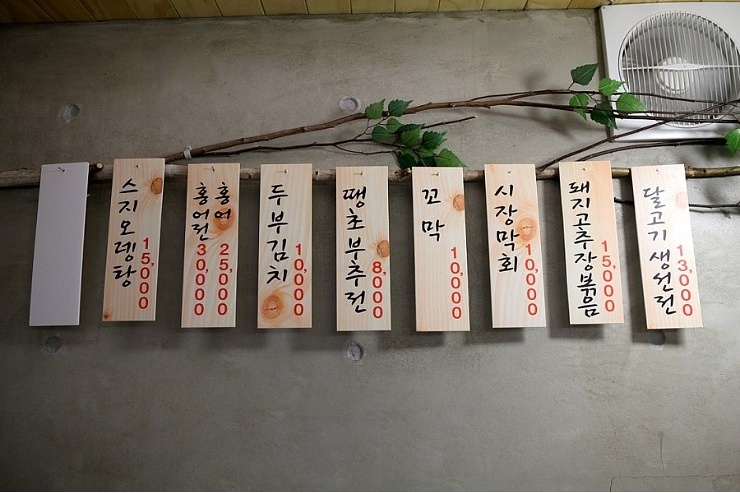 스지오뎅탕 15,000
홍어 25,000
홍어전 30,000
두부김치 10,000
땡초부추전 8,000
꼬막 10,000
시장막회 10,000
돼지고추장볶음 15,000
달고기생선전 13,000